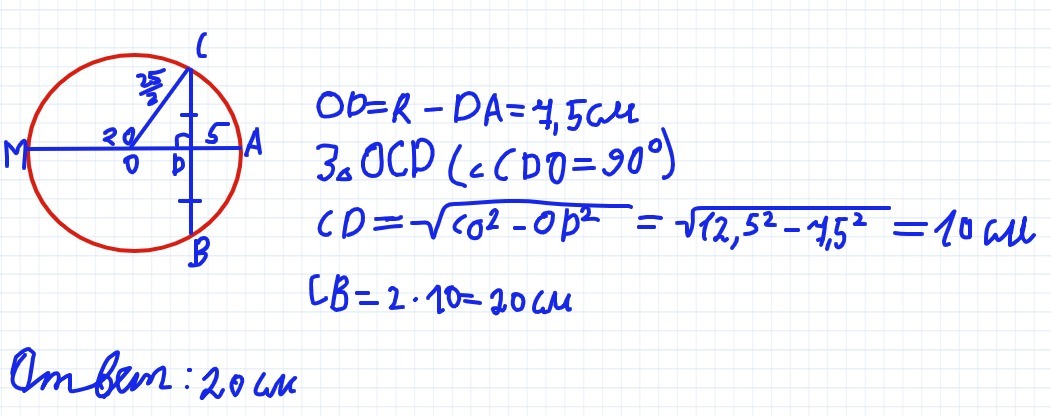 C
25/2
M 20 O D 5 A
B
OD=R-DA=7,5см
З △OCD (∠CDO=90°)
CD=√CO²-OD² = √12,5²-7,5² = 10 см
CB=2·10=20 см
Ответ: 20 см